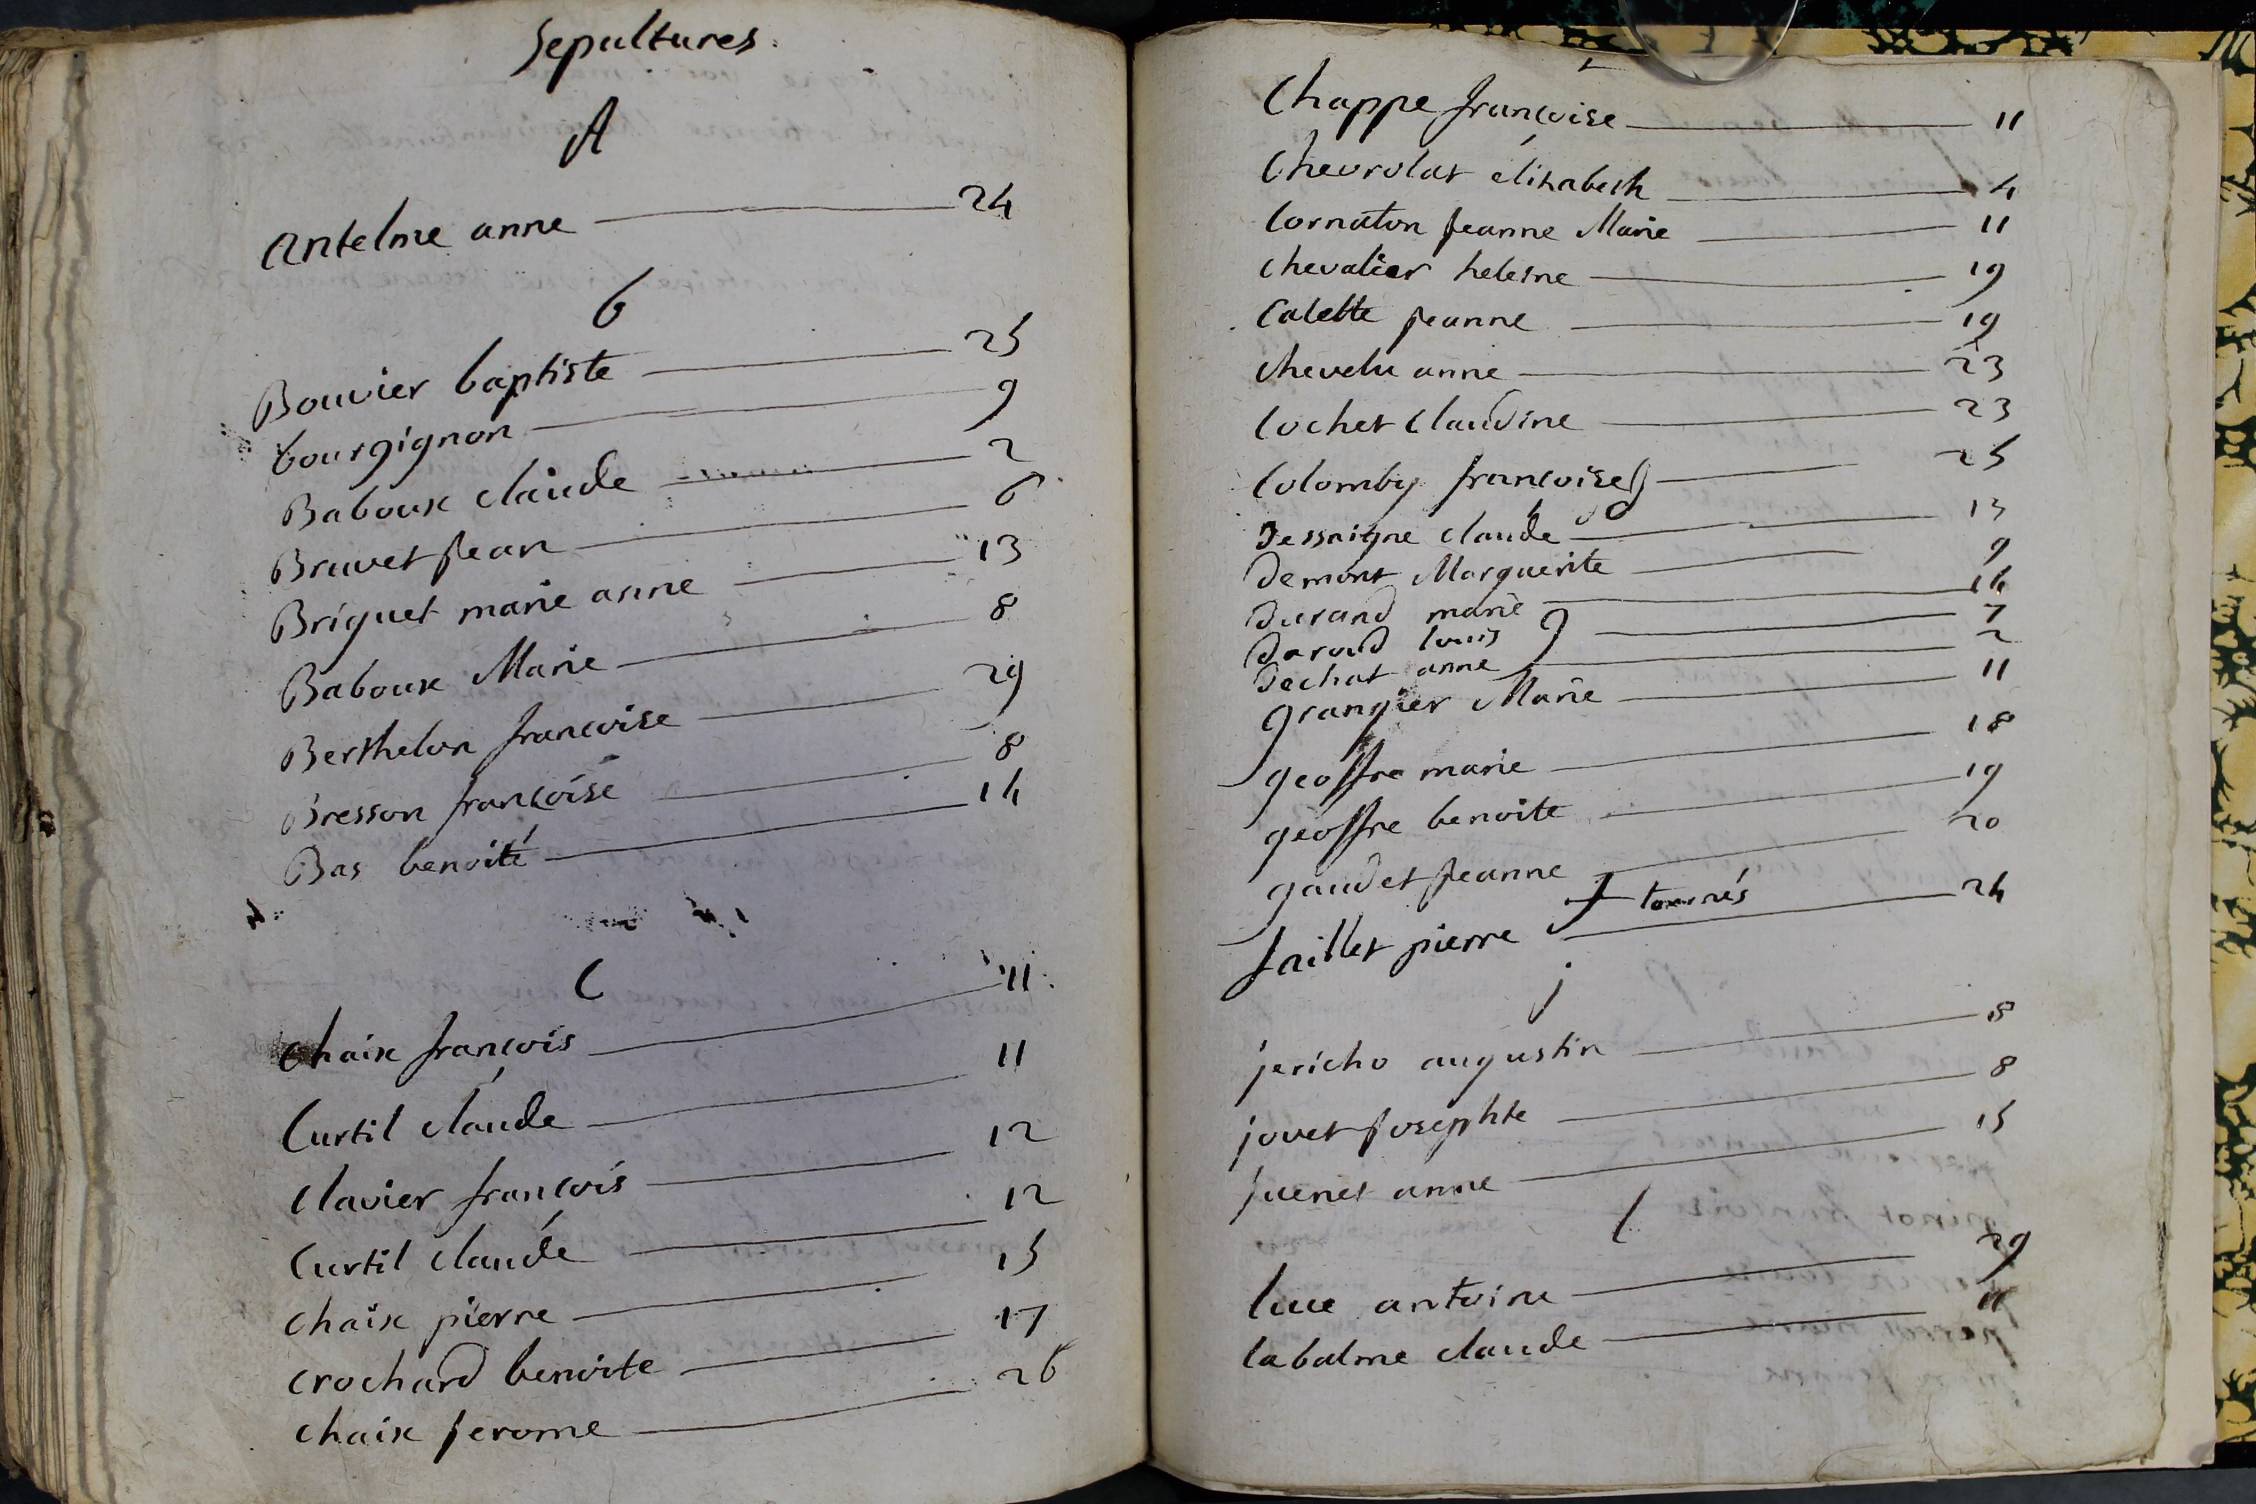 Sepultures.
A
Antelme anne 24
b
Bouvier baptiste 25
bourgignon 9
Baboux claude 2
Bruvet jean 6
Briguet marie anne 13
Baboux Marie 8
Berthelon francoise 29
Bresson françoise 8
Bas benoite 14
C
Chaix françois 11
Curtil claude 11
Clavier françois 12
Curtil claude 12
chaix pierre 15
crochard benoite 17
chaix jerome 26
Chappe françoise 11
Chevrolat elisabeth 4
Cornaton jeanne Marie 11
chevalier helesne 19
Calette jeanne 19
chevelu anne 23
Cochet claudine 23
Colomby francoise 25
Dessaigne claude 13
Demont Marguerite 9
Durand marie 14
Daroud louis 7
Dechat anne 2
g
grangier Marie 11
geoffre marie 18
geoffre benoite 19
gaudet jeanne 20
J tournés
Jaillet pierre 24
j
jericho augustin 8
jovet josephte 8
juenet anne 15
l
luce antoine 29
labalme claude 11